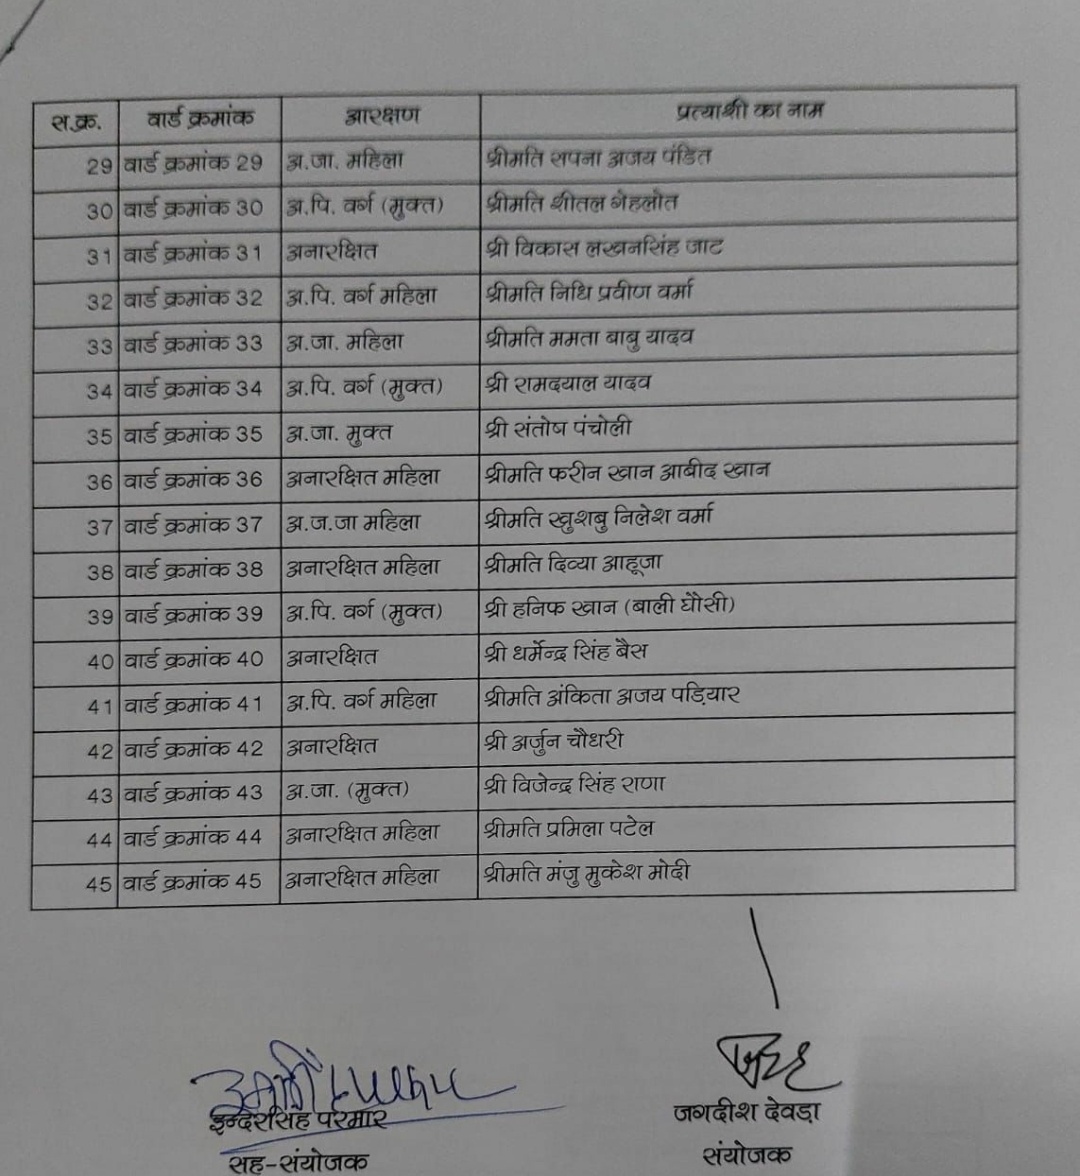 स.क्र. वार्ड क्रमांक आरक्षण प्रत्याशी का नाम
29 वार्ड क्रमांक 29 अ.जा. महिला श्रीमति सपना अजय पंडित
30 वार्ड क्रमांक 30 अ.पि. वर्ग (मुक्त) श्रीमति शीतल गेहलोत
31 वार्ड क्रमांक 31 अनारक्षित श्री विकास लखनसिंह जाट
32 वार्ड क्रमांक 32 अ.पि. वर्ग महिला श्रीमति निधि प्रवीण वर्मा
33 वार्ड क्रमांक 33 अ.जा. महिला श्रीमति ममता बाबु यादव
34 वार्ड क्रमांक 34 अ.पि. वर्ग (मुक्त) श्री रामदयाल यादव
35 वार्ड क्रमांक 35 अ.जा. मुक्त श्री संतोष पंचोली
36 वार्ड क्रमांक 36 अनारक्षित महिला श्रीमति फरीन खान आबीद खान
37 वार्ड क्रमांक 37 अ.ज.जा महिला श्रीमति खुशबु निलेश वर्मा
38 वार्ड क्रमांक 38 अनारक्षित महिला श्रीमति दिव्या आहूजा
39 वार्ड क्रमांक 39 अ.पि. वर्ग (मुक्त) श्री हनिफ खान (बाली घौसी)
40 वार्ड क्रमांक 40 अनारक्षित श्री धर्मेन्द्र सिंह बैस
41 वार्ड क्रमांक 41 अ.पि. वर्ग महिला श्रीमति अंकिता अजय पड़ियार
42 वार्ड क्रमांक 42 अनारक्षित श्री अर्जुन चौधरी
43 वार्ड क्रमांक 43 अ.जा. (मुक्त) श्री विजेन्द्र सिंह राणा
44 वार्ड क्रमांक 44 अनारक्षित महिला श्रीमति प्रमिला पटेल
45 वार्ड क्रमांक 45 अनारक्षित महिला श्रीमति मंजु मुकेश मोदी
इन्देरसिंह परमार जगदीश देवड़ा
सह-संयोजक संयोजक